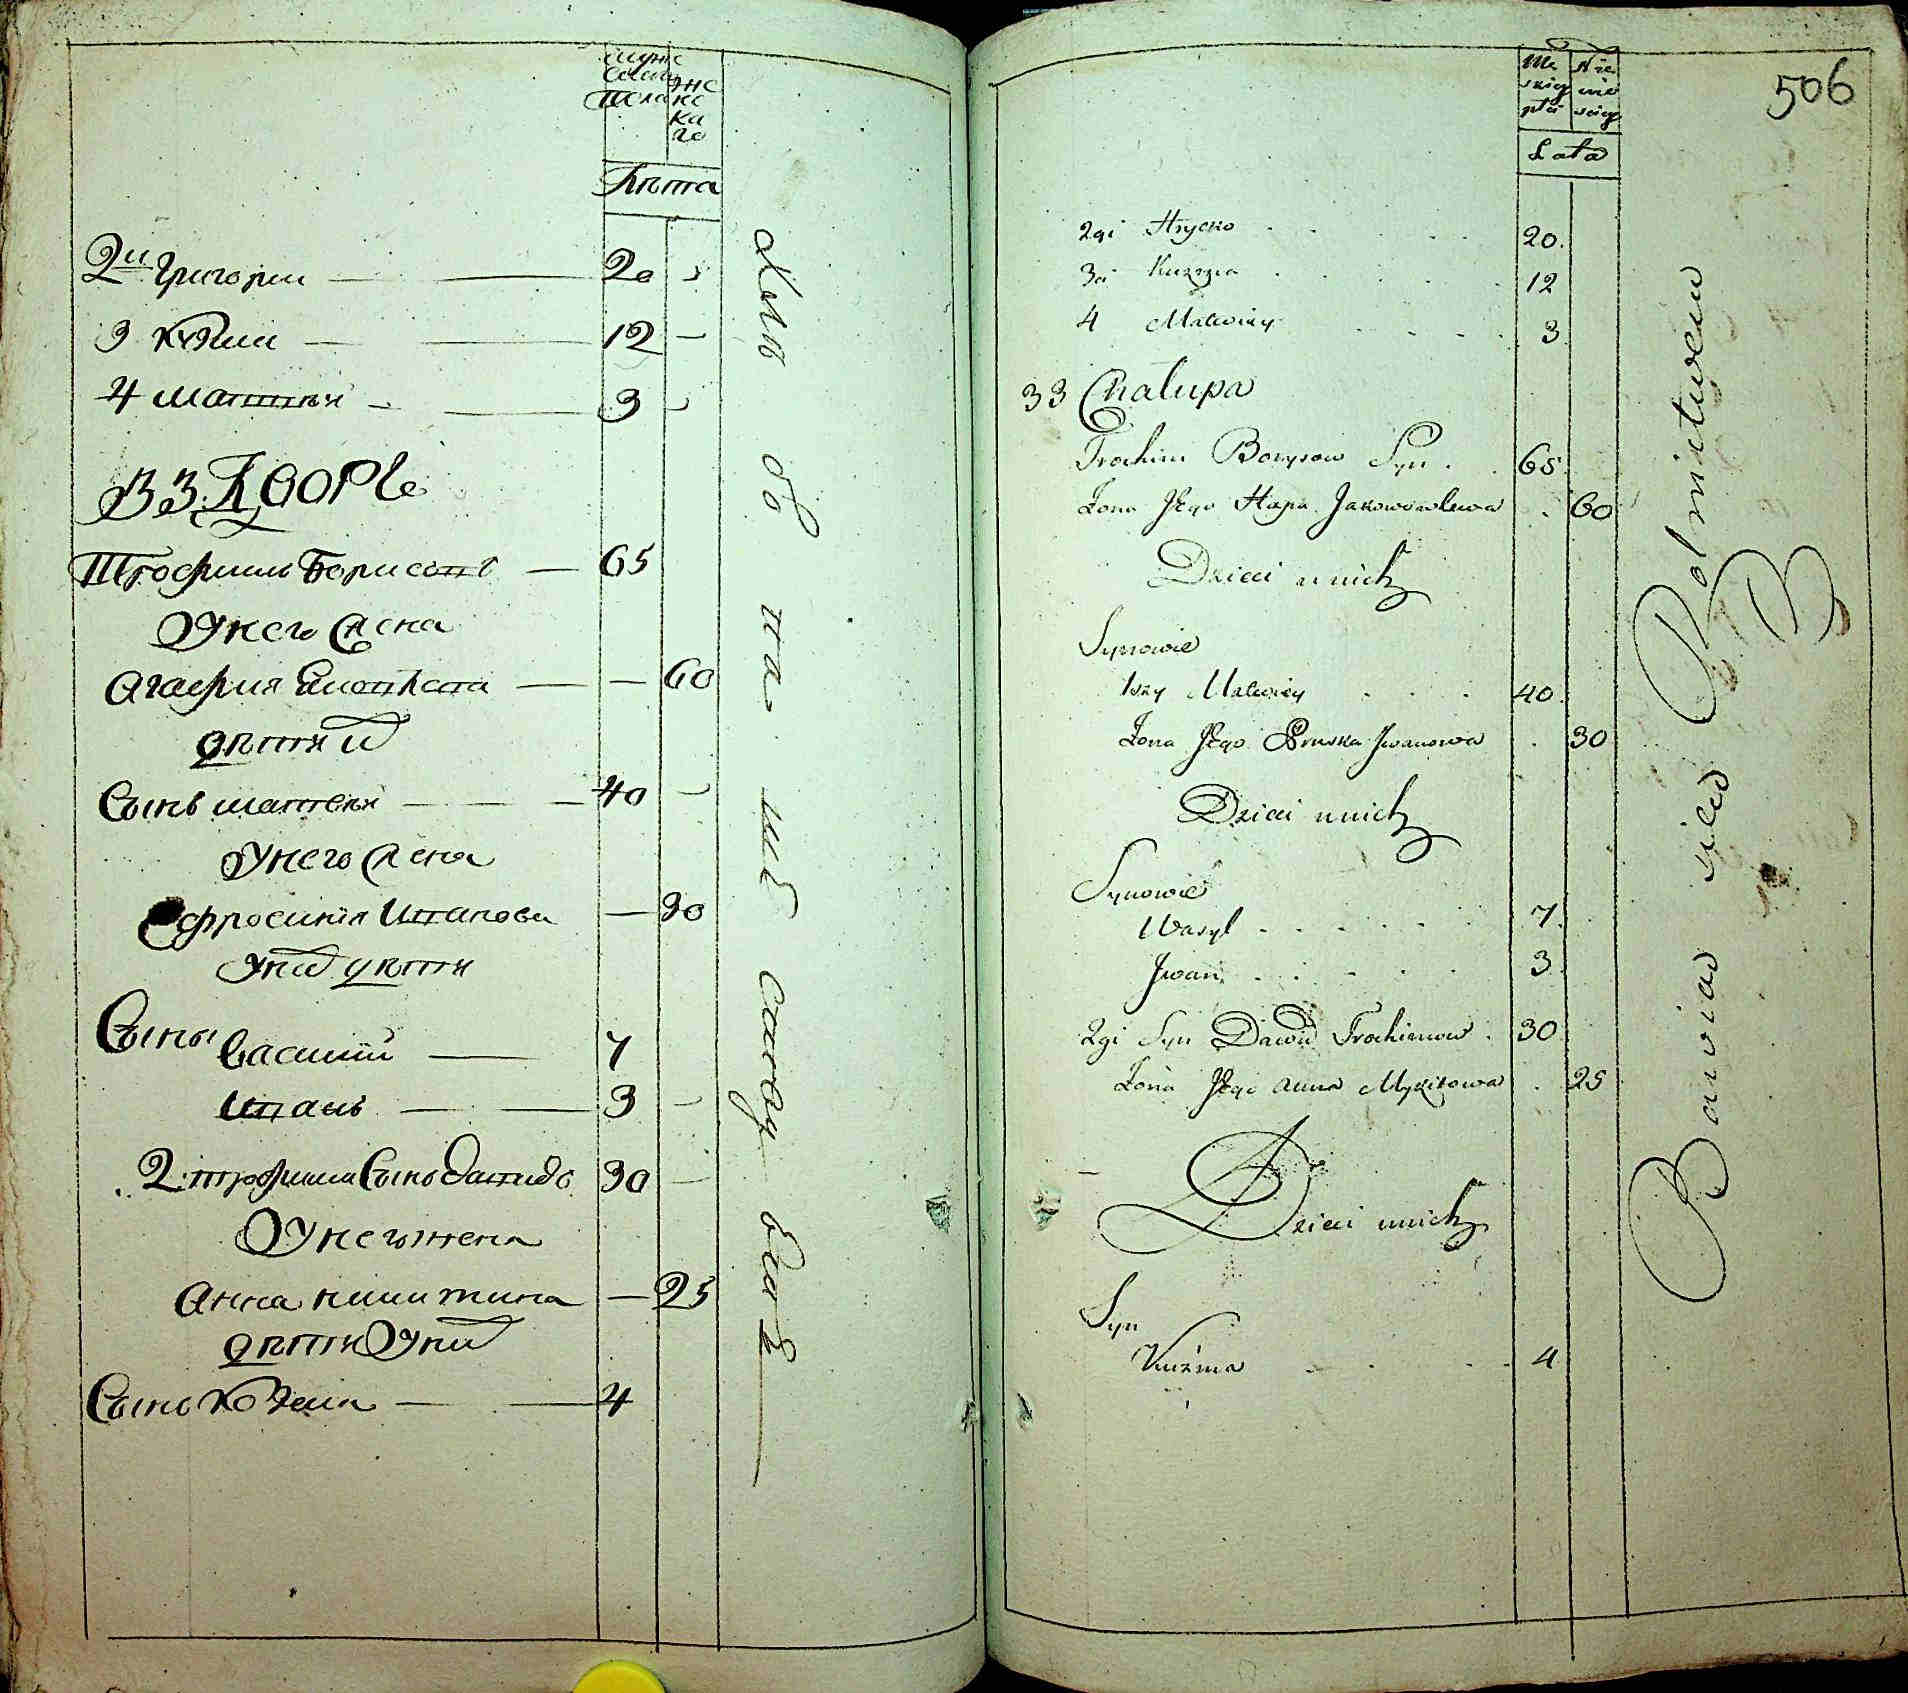 Мужескаго пола
женскаго
Лѣта
2й Григорій 20
3 Кузма 12
4 Матвѣй 3
В 33 Дворѣ
Трофимъ Борисовъ 65
У него жена
Агафия 60
дѣти их
Сынъ Матвѣй 40
У него жена
Ефросиния Иванова 30
У них дѣти
Сыны Василий 7
Иванъ 3
2 Трофима Сынъ Давидъ 30
У него жена
Анна Никитина 25
дѣти У них
Сынъ Козма 4
506
Męskiey płci
Niewieściey
Lata
2gi Hrycko 20
3ci Kuzma 12
4 Matwiey 3
33 Chałupa
Trochim Borysow Syn 65
Żona Jego Hapa Jakowowlewa 60
Dzieci u nich
Synowie
1szy Matwiey 40
Żona Jego Pruska Jwanowa 30
Dzieci u nich
Synowie
Wasyl 7
Jwan 3
2gi Syn Dawid Trochimow 30
Żona Jego Anna Mykitowa 25
Dzieci u nich
Syn
Kuźma 4